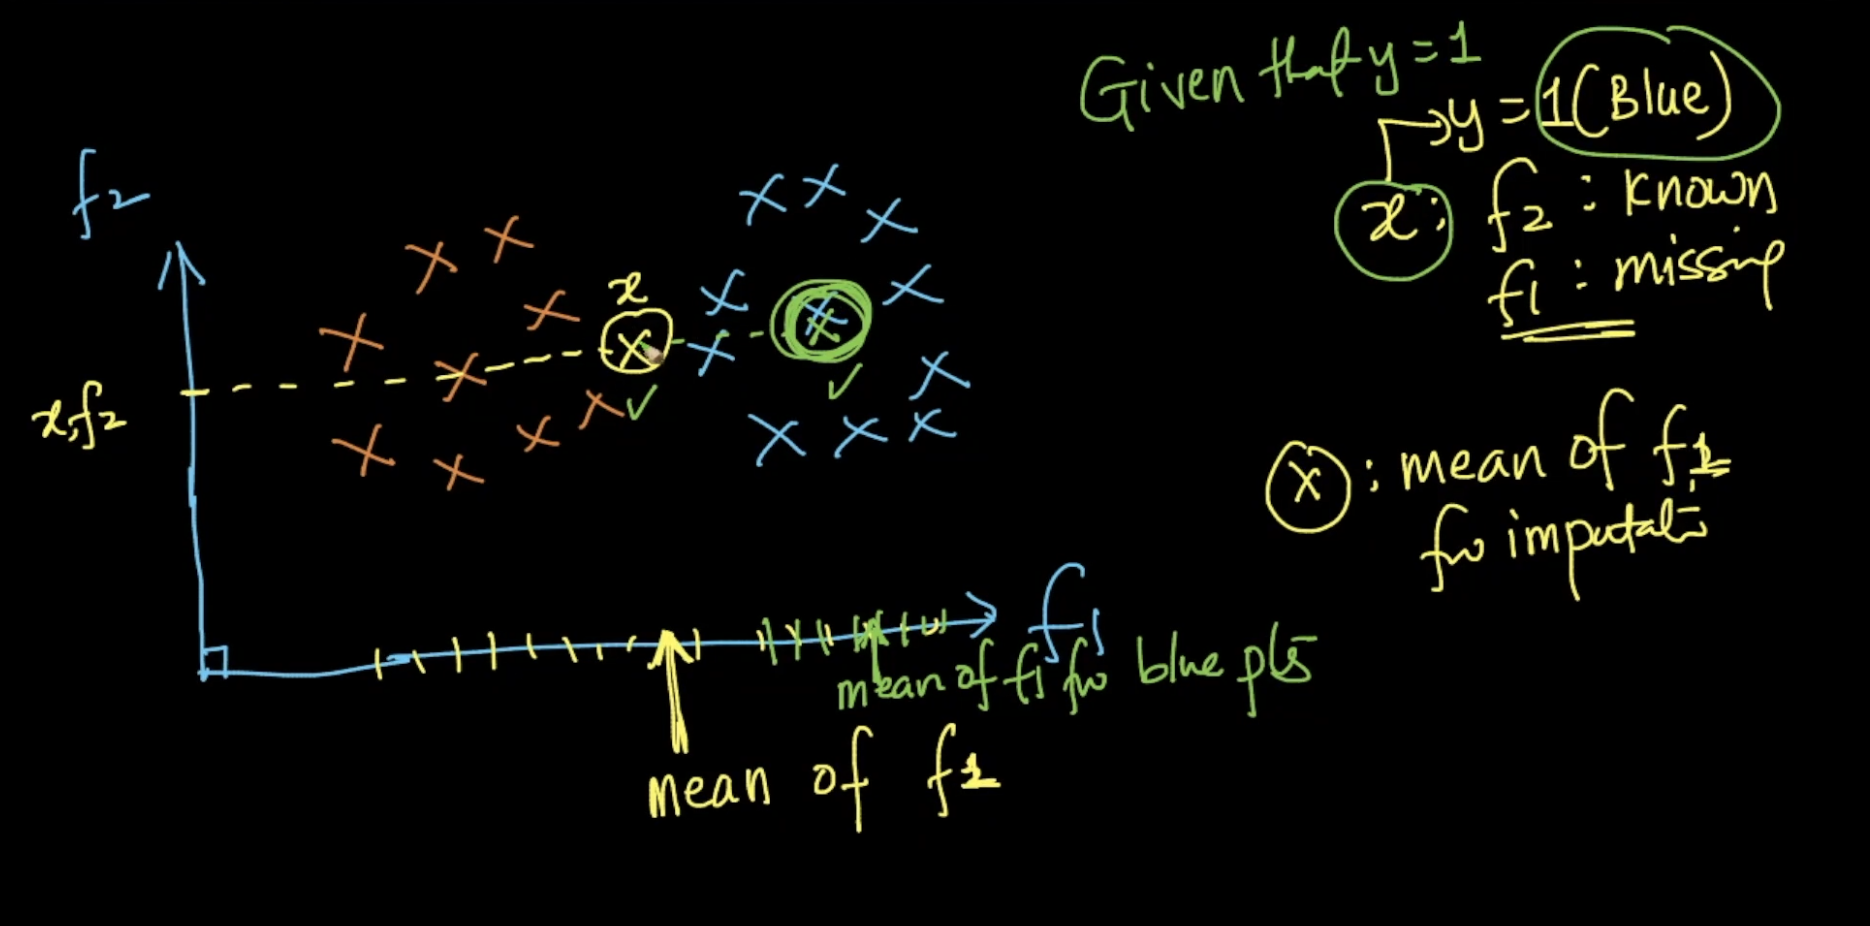 Given that y = 1
y = 1 (Blue)
x : f2 : known
f1 : missing
f2
x
x,f2
x : mean of f1
for imputati
f1
mean of f1 for blue pts
mean of f1